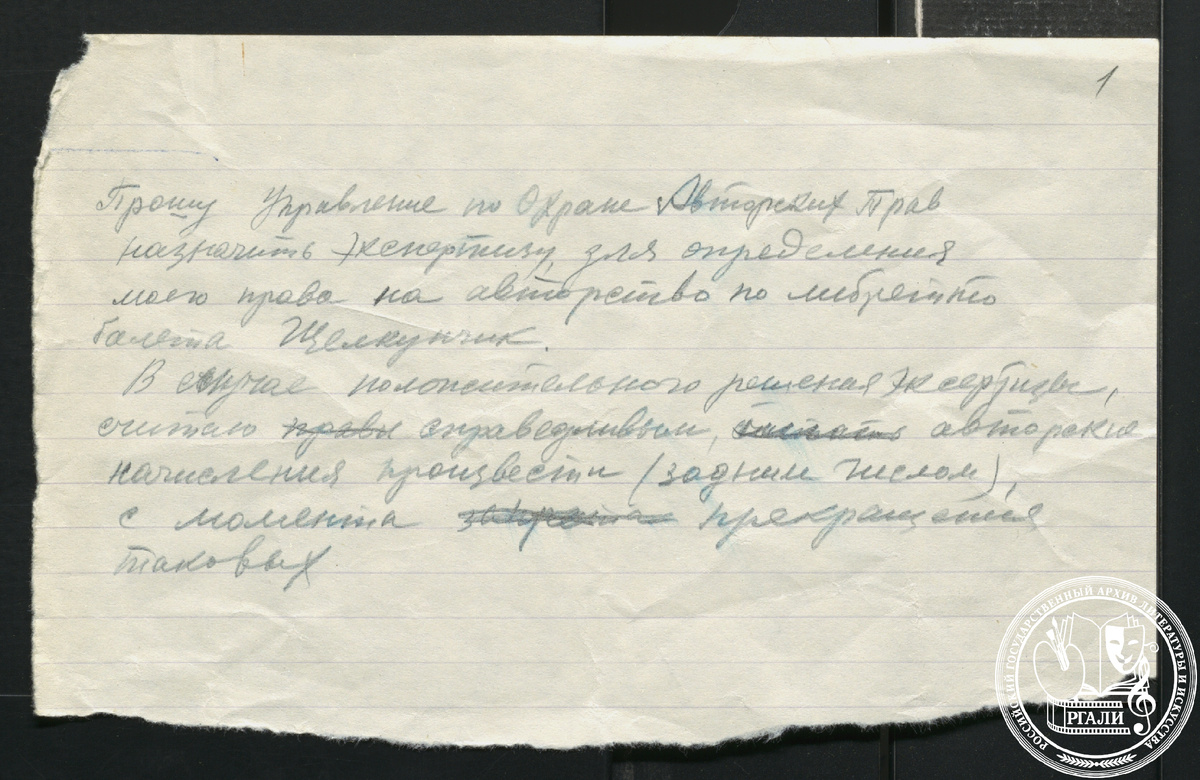 1
Прошу Управление по Охране Авторских Прав
назначить экспертизу для определения
моего права на авторство по либретто
балета Щелкунчик.
В случае положительного решения эксертизы,
считаю правы справедливым, авторские
начисления произвести (задним числом),
с момента запрета прекращения
таковых
РОССИЙСКИЙ ГОСУДАРСТВЕННЫЙ АРХИВ ЛИТЕРАТУРЫ И ИСКУССТВА
РГАЛИ